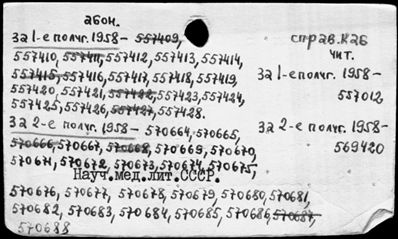 абон.
за 1-е полуг. 1958 - 557409,
557410, 557411, 557412, 557413, 557414,
557415, 557416, 557417, 557418, 557419,
557420, 557421, 557422, 557423, 557424,
557425, 557426, 557427, 557428.
за 2-е полуг. 1958 - 570664, 570665,
570666, 570667, 570668, 570669, 570670,
570671, 570672, 570673, 570674, 570675,
Науч.мед.лит.СССР.
570676, 570677, 570678, 570679, 570680, 570681,
570682, 570683, 570684, 570685, 570686, 570687,
570688
справ.каб
чит.
за 1-е полуг. 1958-
557012
за 2-е полуг. 1958-
569420